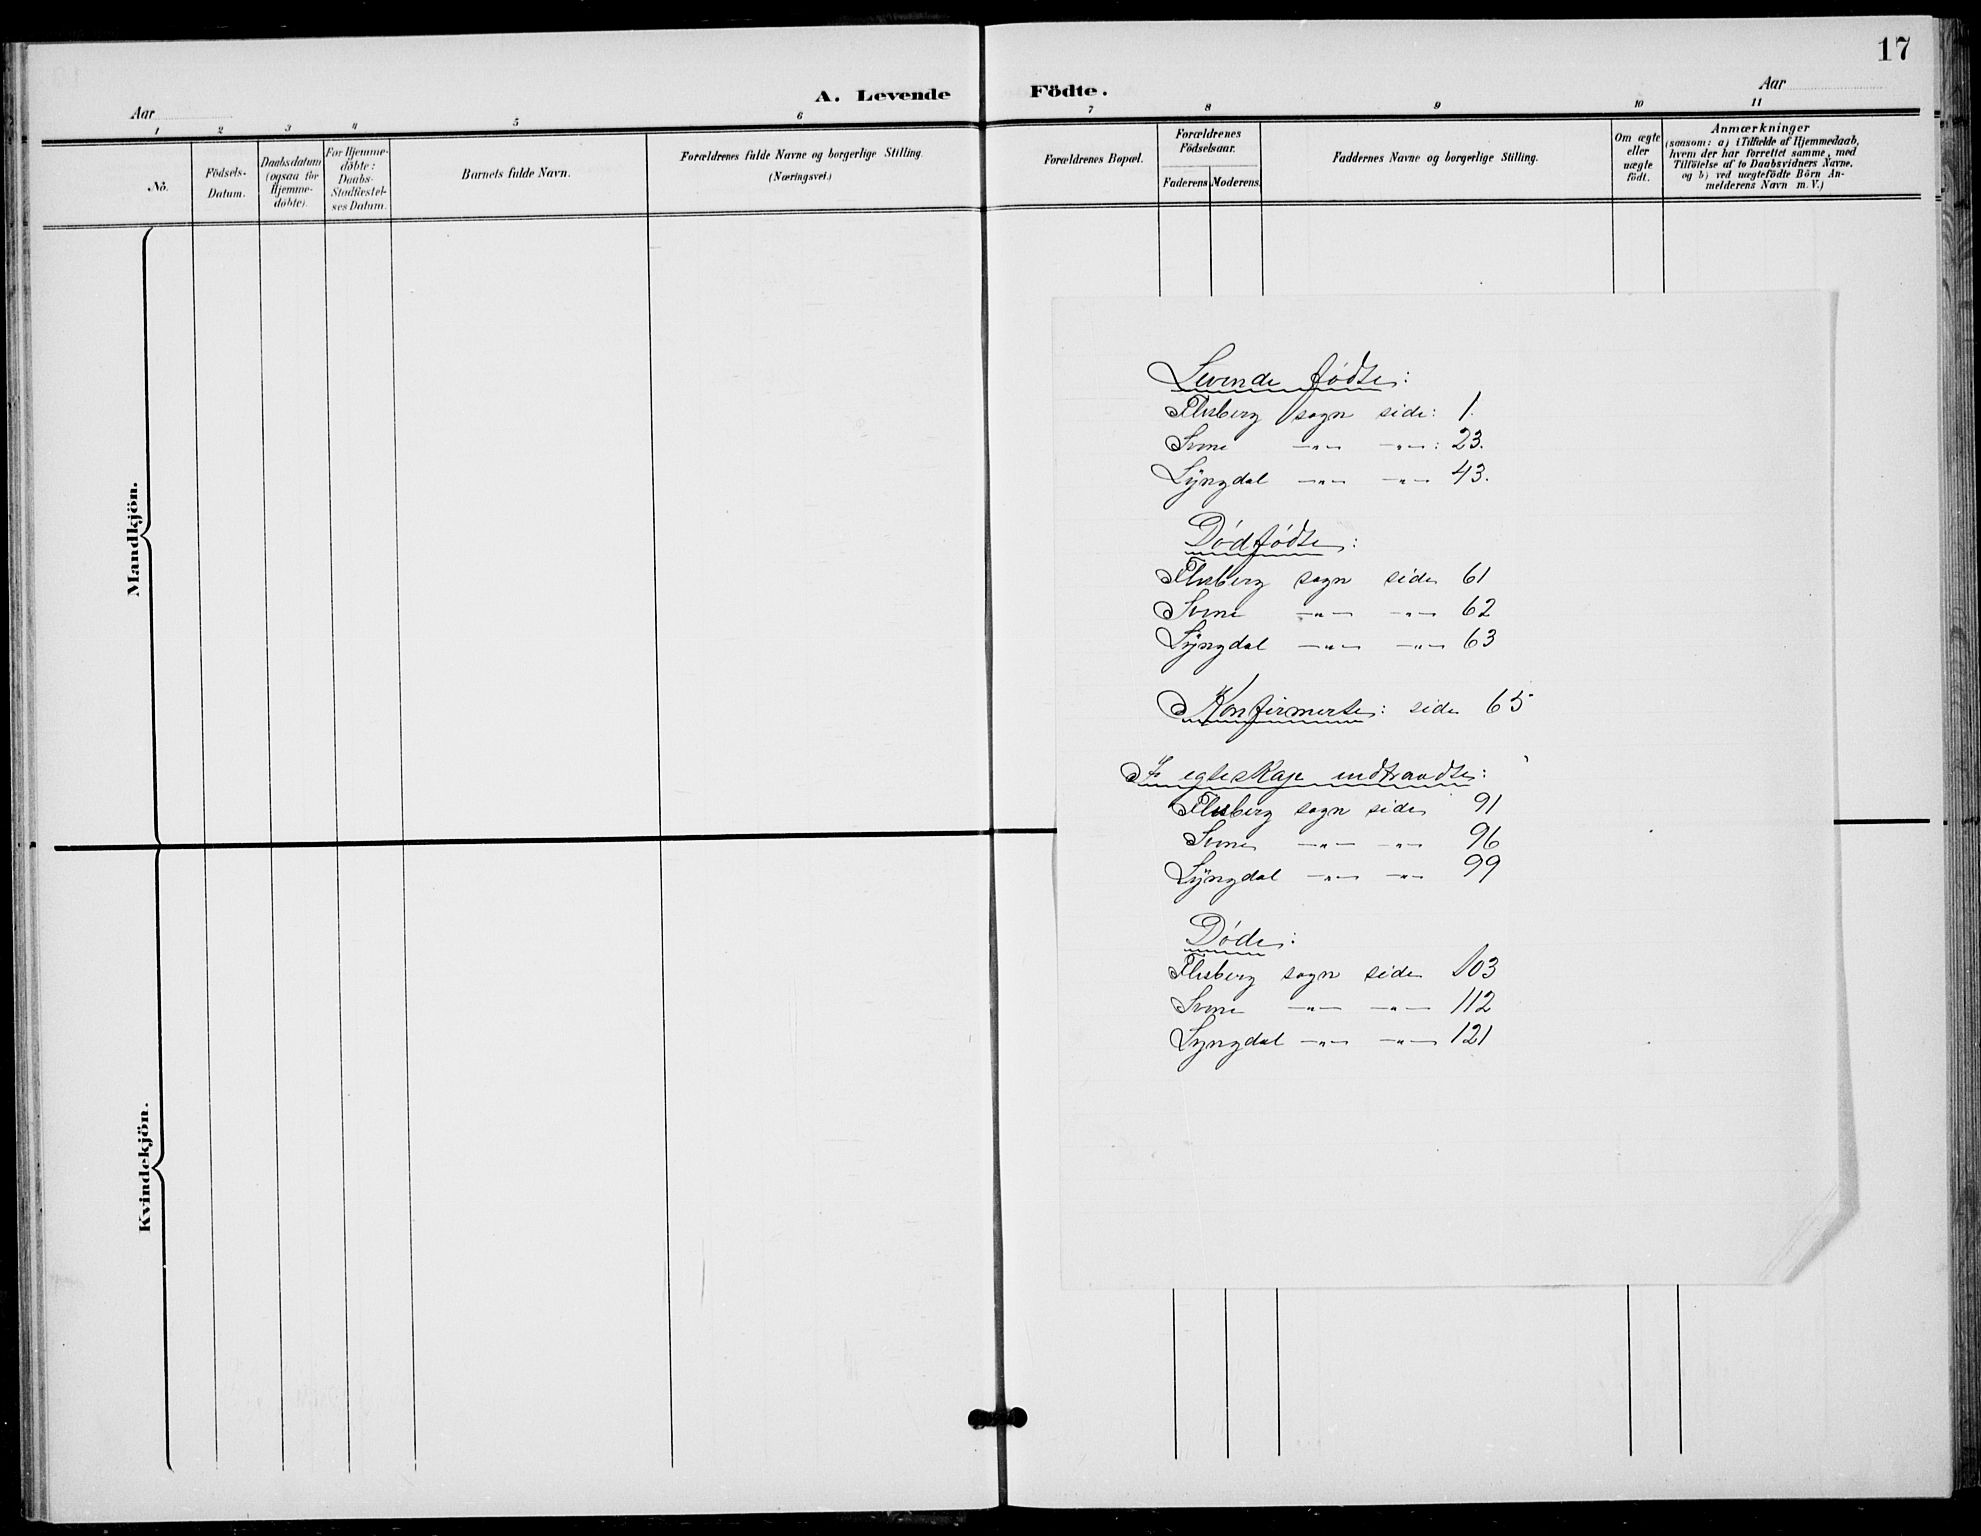 17
A. Levende Födte.
Aar
Aar
1 2 3 4 5 6 7 8 9 10 11
No.
Födsels-
Datum.
Daabsdatum
(ogsaa for
Hjemme-
döbte).
For Hjemme-
döbte:
Daabs-
Stadfæstel-
ses Datum.
Barnets fulde Navn.
Forældrenes fulde Navne og borgerlige Stilling.
(Næringsvei.)
Forældrenes Bopæl.
Forældrenes
Födselsaar.
Faderens Moderens.
Faddernes Navne og borgerlige Stilling.
Om ægte
eller
uægte
födt.
Anmærkninger
(saasom: a) i Tilfælde af Hjemmedaab,
hvem der har forrettet samme, med
Tilföielse af to Daabsvidners Navne,
og b) ved uægtefödte Börn An-
melderens Navn m. V.)
Mandkjön.
Kvindekjön.
Levende fødte:
Flesberg sogn side: 1.
Svene —„— —„—: 23.
Lÿngdal —„— —„— 43.
Dødfødte:
Flesberg sogn side 61
Svene —„— —„— 62
Lÿngdal —„— —„— 63
Konfirmerte: side 65
I egteskap indtraadte:
Flesberg sogn side 91
Svene —„— —„— 96
Lÿngdal —„— —„— 99
Døde:
Flesberg sogn side 103
Svene —„— —„— 112
Lyngdal —„— —„— 121